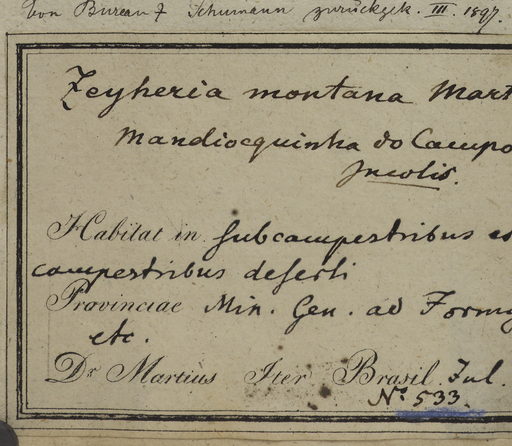 Von Bureau & Schumann zurückgek. III. 1897.
Zeyheria montana Mart
Mandiocquinha do Campo
Incolis.
Habitat in subcampestribus et
campestribus deserti
Provinciae Min. Gen. ad Formig
etc.
Dr Martius Iter Brasil. Jul.
No. 533.